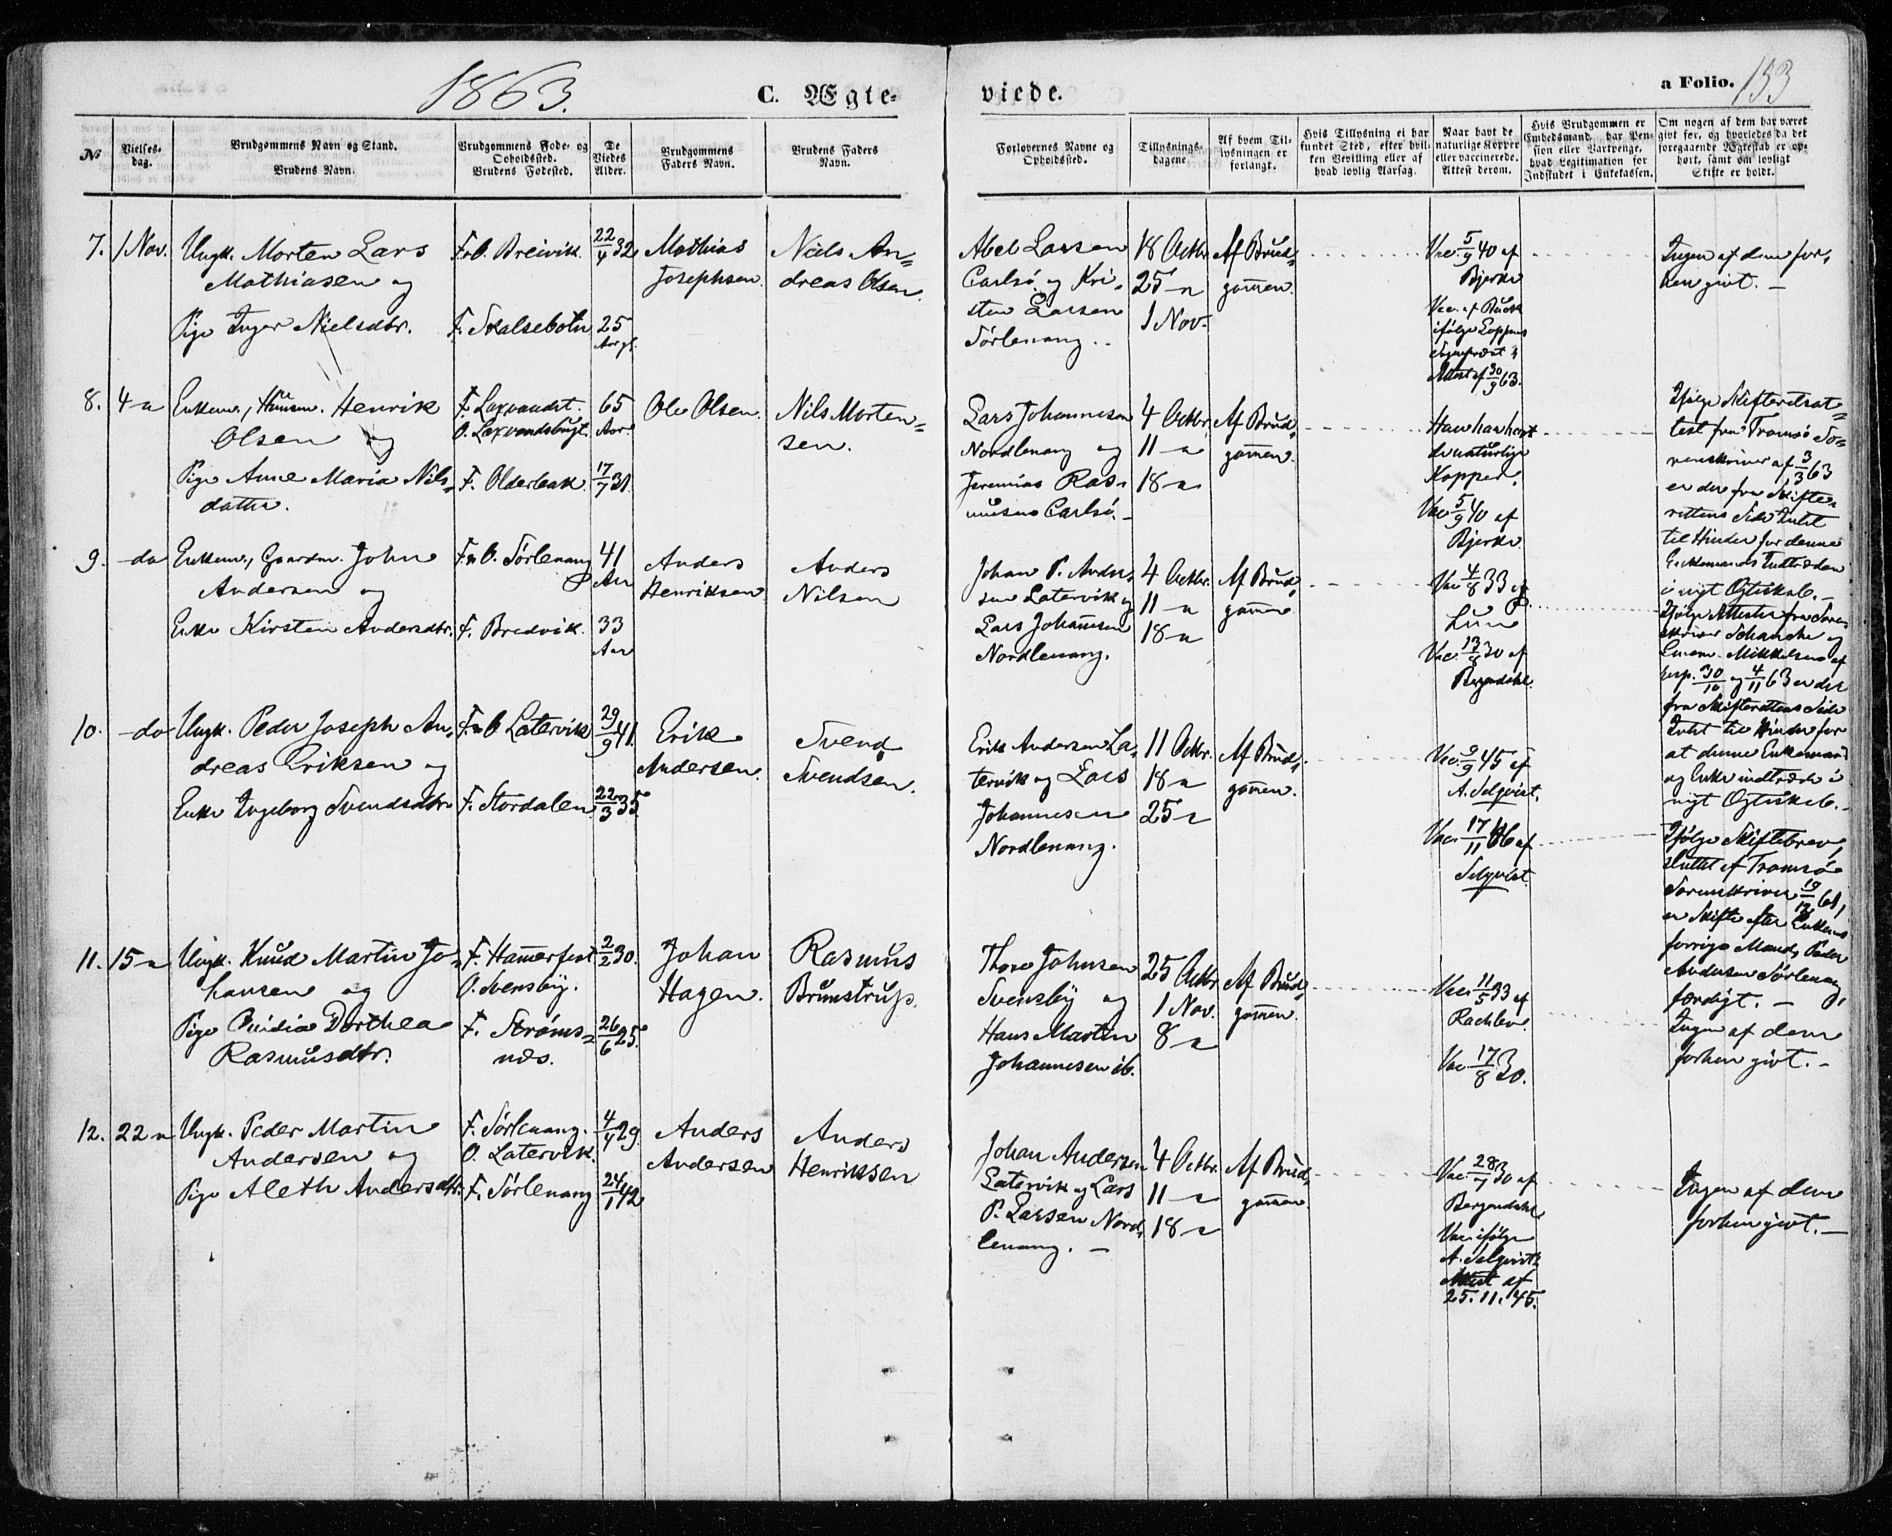 1863.
C. Ægte-
viede.
a Folio. 133
No
Vielses-
dag.
Brudgommens Navn og Stand.
Brudens Navn.
Brudgommens Føde- og
Opholdssted.
Brudens Fødested.
De
Viedes
Alder.
Brudgommens
Faders Navn.
Brudens Faders
Navn.
Forlovernes Navne og
Opholdssted.
Tillysnings-
dagene
Af hvem Til-
lysningen er
forlangt.
Hvis Tillysning ei har
fundet Sted, efter hvil-
ken Bevilling eller af
hvad lovlig Aarsag.
Naar havt de
naturlige Kopper
eller vaccinerede.
Attest derom.
Hvis Brudgommen er
Embedsmand, har Pen-
sion eller Vartpenge,
hvad Legitimation for
Indskudet i Enkekassen.
Om nogen af dem har været
givt før, og hvorledes da det
foregaaende Ægteskab er op-
hørt, samt om lovligt
Skifte er holdt.
7. 1 Nov.
Ungk. Morten Lars
Mathiasen og
Pige Inger Nielsdtr.
F. O. Breivik.
F. Skalsebotn
22/4 32
25
Aar
Mathias
Josephsen.
Niels An=
dreas Olsen.
Abel Larsen
Carlsø og Kri-
sten Larsen
Sørlenang.
18 Octbr.
25 -
1 Nov.
Af Brud-
gommen.
Vac. 5/9 40 af
Bjerke
Vac. af Buck
ifølge Loppens
Attest af 30/9 63.
Ingen af dem for-
hen givt. -
8. 4 -
Enkem., Huusm. Henrik
Olsen og
Pige Anne Maria Nils-
datter.
F. Laxvandet.
O. Laxvandsbugt.
F. Olderbak.
65
Aar.
17/7 31.
Ole Olsen.
Nils Morten-
sen.
Lars Johannesen
Nordlenang og
Jeremias Ras-
musen Carlsø. -
4 Octbr.
11 -
18 -
Af Brud-
gommen.
Han har havt
de naturlige
Kopper.
Vac. 5/9 40 af
Bjerke.
Ifølge Skifteretsat-
test fra Tromsø So-
renskriver af 3/3 63
er der fra Skifte-
rettens Side Intet
til Hinder for denne
Enkemands Indtræden
i nyt Ægteskab. -
9. - do
Enkem., Gaardm. John
Andersen og
Enke Kirsten Andersdtr.
F. & O. Sørlenang
F. Bredvik.
41
Aar
33
Aar
Anders
Henriksen
Anders
Nilsen
Johan P. Ander-
sen Latervik og
Lars Johannesen
Nordlenang.
4 Octbr.
11 -
18 -
Af Brud-
gommen
Vac. 4/8 33 af
Lund
Vac. 13/8 30 af
Bergendahl.
Ifølge Attester fra Soren-
skriver Schanche og
Mikkelsen af
resp. 30/10 og 4/11 63 er der
fra Skifterettens Side
Intet til Hinder for
at denne Enkemand
og Enke indtræde i
nyt Ægteskab. -
10. - do
Ungk. Peder Joseph An-
dreas Eriksen og
Enke Ingeborg Svendsdtr.
F. & O Latervik
F. Stordalen
29/9 41.
22/3 35
Erik
Andersen.
Svend
Svendsen.
Erik Andersen La-
tervik og Lars
Johannesen
Nordlenang.
11 Octbr.
18 -
25 -
Af Brud-
gommen.
Vac. 9/9 45 af
A. Selqvist.
Vac. 17/11 46 af
Selqvist.
Ifølge Skiftebrev,
sluttet af Tromsø
Sorenskriver 19/12 61,
er Skifte efter Enkens
forrige Mand, Peder
Andersen Sørlenang,
færdigt. -
11. 15 -
Ungk. Knud Martin Jo-
hansen og
Pige Dorthea
Rasmusdtr.
F. Hammerfest
O. Svensby.
F. Strøms-
næs.
2/2 30.
26/6 25.
Johan
Hagen.
Rasmus
Brunstrup.
Thore Johnsen
Svensby og
Hans Martin
Johannesen ib.
25 Octbr.
1 Nov.
8 -
Af Brud-
gommen.
Vac. 11/5 33 af
Rachlev.
Vac. 17/8 30.
Ingen af dem
forhen givt. -
12. 22 -
Ungk. Peder Martin
Andersen og
Pige Aleth Andersdtr.
F. Sørlenang.
O. Latervik.
F. Sørlenang
4/4 29
24/1 42
Anders
Andersen
Anders
Henriksen
Johan Andersen
Latervik og Lars
P. Larsen Nord-
lenang. -
4 Octbr.
11 -
18 -
Af Brud-
gommen.
Vac. 28/7 30 af
Bergendahl
Vac. ifølge
A. Selqvists
Attest af
25. 11. 45.
Ingen af dem
forhen givt. -